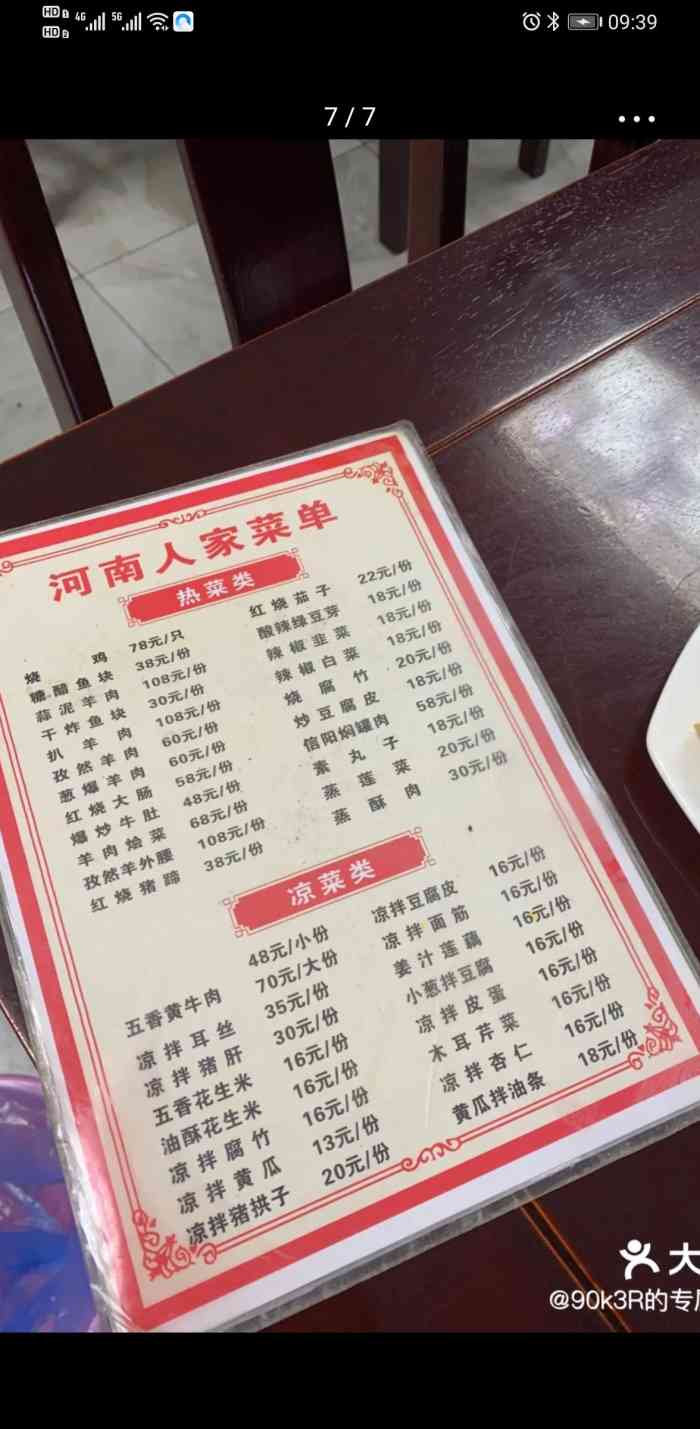 HD 1 4G 5G
HD 2
09:39
7 / 7
河南人家菜单
热菜类
烧鸡 78元/只
糖醋鱼块 38元/份
蒜泥羊肉 108元/份
干炸鱼块 30元/份
扒羊肉 108元/份
孜然羊肉 60元/份
葱爆羊肉 60元/份
红烧大肠 58元/份
爆炒牛肚 48元/份
羊肉烩菜 68元/份
孜然羊外腰 108元/份
红烧猪蹄 38元/份
红烧茄子 22元/份
酸辣绿豆芽 18元/份
辣椒韭菜 18元/份
辣椒白菜 18元/份
烧腐竹 20元/份
炒豆腐皮 18元/份
信阳焖罐肉 58元/份
素丸子 18元/份
蒸莲菜 20元/份
蒸酥肉 30元/份
凉菜类
48元/小份
五香黄牛肉 70元/大份
凉拌耳丝 35元/份
凉拌猪肝 30元/份
五香花生米 16元/份
油酥花生米 16元/份
凉拌腐竹 16元/份
凉拌黄瓜 13元/份
凉拌猪拱子 20元/份
凉拌豆腐皮 16元/份
凉拌面筋 16元/份
姜汁莲藕 16元/份
小葱拌豆腐 16元/份
凉拌皮蛋 16元/份
木耳芹菜 16元/份
凉拌杏仁 16元/份
黄瓜拌油条 18元/份
大
@90k3R的专